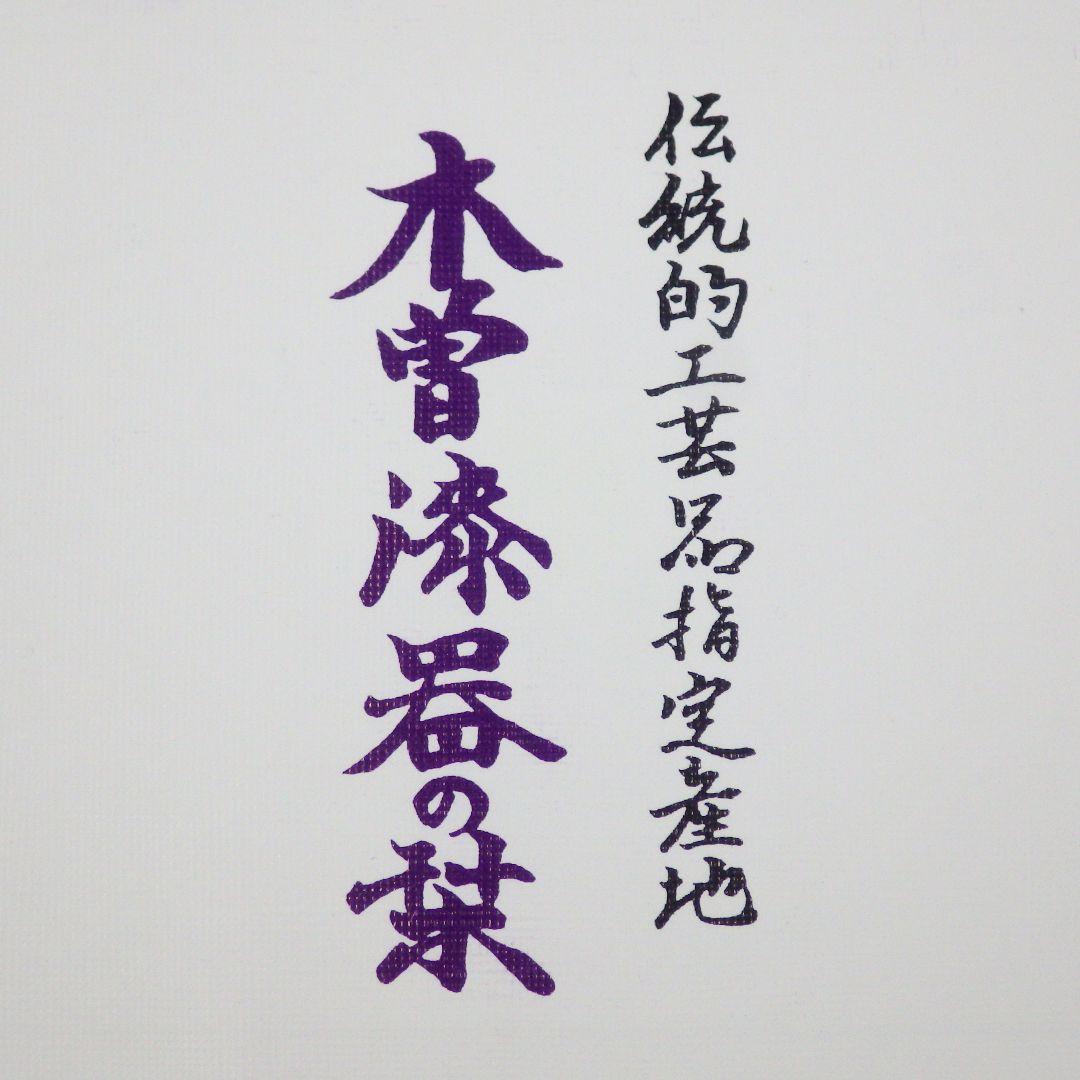 伝統的工芸品指定産地
木曽漆器の栞